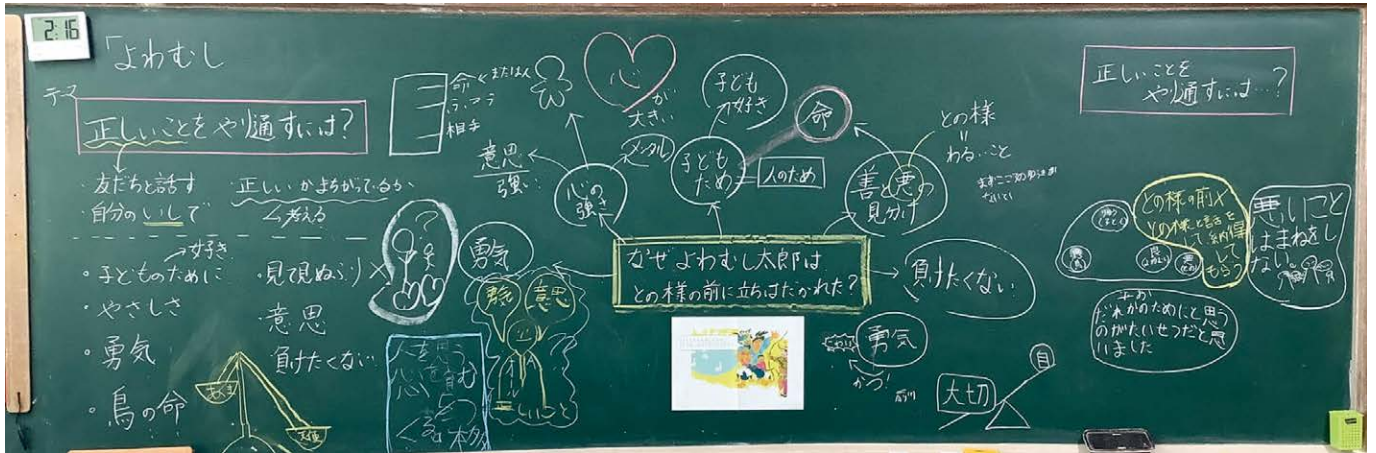 2:16
「よわむし
テーマ
正しいことをやり通すには?
・友だちと話す
・自分のいしで
・正しいかまちがっているか
考える
好き
・子どものために
・やさしさ
・勇気
・鳥の命
・見て見ぬふり
・意思
・負けたくない
あくま
天使
命
または人
ふつう
相手
心
が
大きい
メンタル
意思
強い
心の
強さ
子ども
好き
子ども
ため
人のため
命
との様
わるいこと
善と悪の
見分け
なぜよわむし太郎は
との様の前に立ちはだかれた?
勇気
勇気
意思
人を思う
いいこと
負けたくない
勇気
こわい
かつ!
大切
自
正しいことを
やり通すには…?
との様の前×
との様と話を
して納得
して
もらう
悪いこと
はまねをし
ない。
だれかのためにと思う
のがたいせつだと思
いました